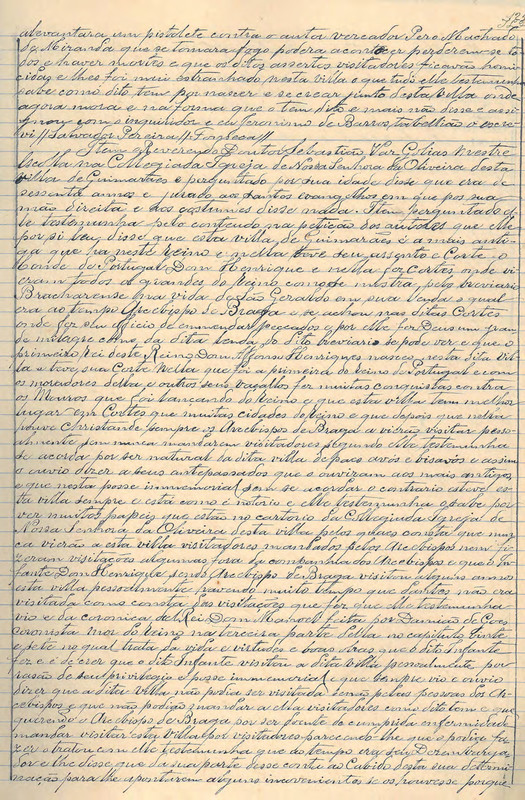 alevantara um pistolete contra o autor vereador Pero Machado
de Miranda que se tomara fogo podera acontecer perderem-se to
dos e haver mortes e que os ditos assertos visitadores ficavão homi
cidas e lhes foi mui estranhado nesta villa o que tudo elle testemunha
sabe como dito tem por nascer e se crear junto desta villa onde
agora mora e na forma que o tem dito e mais não disse e assi
gnou com o inquiridor e eu Jeronimo de Barros, taballião o escre
vi // Salvador Pereira // Fonseca //
Item o reverendo Doutor Sebastião Vaz Golias mestre
escholla na Collegiada Igreja de Nossa Senhora da Oliveira desta
villa de Guimarães e perguntado por sua idade disse que era de
sessenta annos e jurado aos santos evangelhos em que pos sua
mão direita e aos costumes disse nada. Item perguntado el
le testemunha pelo contendo na petição dos autores que elle
por si leu, disse que esta villa de Guimarães é a mais anti
ga que ha neste reino e nella teve seu assento e Corte o
Conde de Portugal Dom Henrique e nella fez Cortes onde vi
eram todos os grandes do Reino como se mostra pelo breviario
Bracharense na vida de São Geraldo em sua lenda o qual
era ao tempo Arcebispo de Braga e se achou nas ditas Cortes
onde fez seu officio de emmendar peccados e por elle fez Deus um gran
de milagre como da dita lenda do dito breviario se pode ver e que o
primeiro Rei deste Reino Dom Affonso Henriques nasceu nesta dita vil
la e teve sua Corte nella que foi a primeira do Reino de Portugal e com
os moradores della e outros seus vasallos fez muitas conquistas contra
os Mouros que foi lançando do Reino e que esta villa tem melhor
lugar em Cortes que muitas cidades do Reino e que depois que nella
houve Christandade sempre os Arcebispos de Braga a virão visitar pesso
almente sem nunca mandarem visitadores segundo elle testemunha
se acorda por ser natural da dita villa de paes avós e bisavós e assim
o ouvio dizer a seus antepassados que o ouviram aos mais antigos
e que nesta posse immemorial sem se acordar o contrario esteve es
ta villa sempre e está como é notorio e elle testemunha o sabe por
ver muitos papeis que estão no cartorio da Collegiada Igreja de
Nossa Senhora da Oliveira desta villa pelos quaes consta que nun
ca vierão a esta villa visitadores mandados pelos Arcebispos nem fi
zeram visitações algumas fora da companhia dos Arcebispos e que o In
fante Dom Henrique sendo Arcebispo de Braga visitou alguns annos
esta villa pessoalmente havendo muito tempo que dantes não era
visitada como consta das visitações que fez que elle testemunha
vio e da coronica de Rei Dom Manoel feita por Damião de Goes
coronista mór do Reino na terceira parte della no capitulo vinte
e sete no qual trata da vida e virtudes e boas obras que o dito Infante
fez e é de crer que o dito Infante visitou a dita villa pessoalmente por
rasão de seu privilegio e posse immemorial e que sempre vio e ouvio
dizer que a dita villa não podia ser visitada senão pelas pessoas dos Ar
cebispos e que não podião mandar a ella visitadores como dito tem e que
querendo o Arcebispo de Braga por ser doente de comprida enfermidade
mandar visitar esta villa por visitadores parecendo-lhe que o podia fa
zer o tratou com elle testemunha que ao tempo era seu Desembarga
dor e lhe disse que da sua parte desse conta ao Cabido desta sua determi
nação para lhe apontarem alguns inconvenientes se os houvesse porque